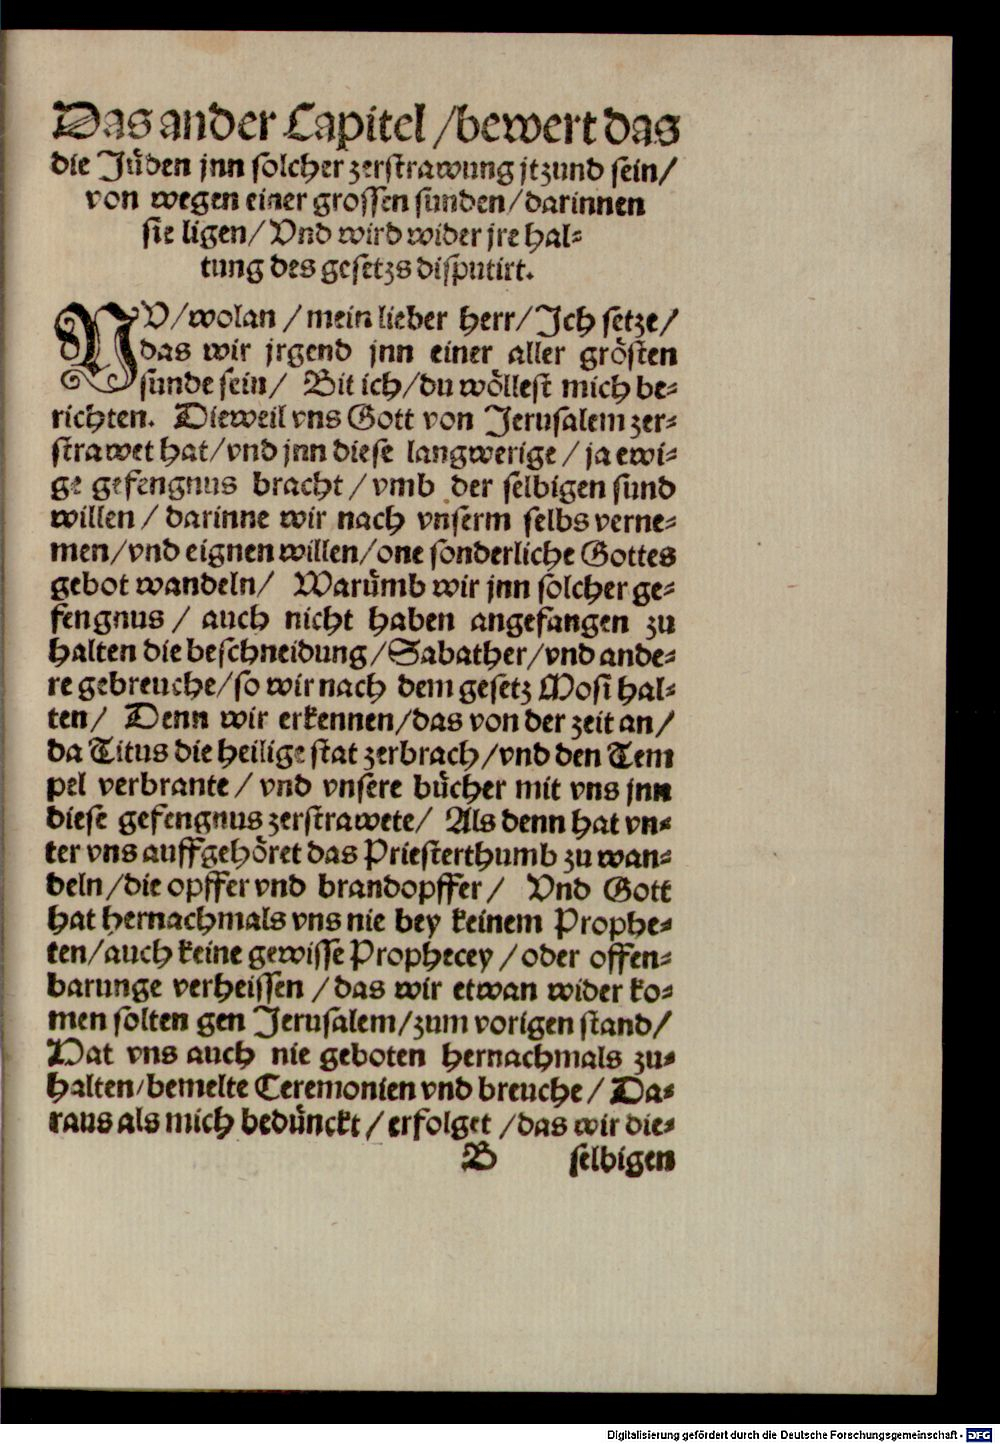 Das ander Capitel /bewert das
die Jüden jnn solcher zerstrawung jtzund sein/
von wegen einer grossen sunden/darinnen
sie ligen/ Vnd wird wider jre hal-
tung des gesetzs disputirt.
NV/wolan /mein lieber herr/ Ich setze/
das wir jrgend jnn einer aller grösten
sunde sein/ Bit ich/du wöllest mich be-
richten. Dieweil vns Gott von Jerusalem zer-
strawet hat/vnd jnn diese langwerige / ja ewi-
ge gefengnus bracht / vmb der selbigen sund
willen / darinne wir nach vnserm selbs verne-
men/vnd eignen willen/one sonderliche Gottes
gebot wandeln/ Warümb wir jnn solcher ge-
fengnus / auch nicht haben angefangen zu
halten die beschneidung/Sabather/vnd ande-
re gebreuche/so wir nach dem gesetz Mosi hal-
ten/ Denn wir erkennen/das von der zeit an/
da Titus die heilige stat zerbrach/vnd den Tem
pel verbrante / vnd vnsere bücher mit vns jnn
diese gefengnus zerstrawete/ Als denn hat vn-
ter vns auffgehöret das Priesterthumb zu wan-
deln/die opffer vnd brandopffer/ Vnd Gott
hat hernachmals vns nie bey keinem Prophe-
ten/auch keine gewisse Prophecey /oder offen-
barunge verheissen /das wir etwan wider ko-
men solten gen Jerusalem/zum vorigen stand/
Hat vns auch nie geboten hernachmals zu-
halten/bemelte Ceremonien vnd breuche/ Da-
raus als mich bedünckt / erfolget /das wir die-
B selbigen
Digitalisierung gefördert durch die Deutsche Forschungsgemeinschaft - DFG